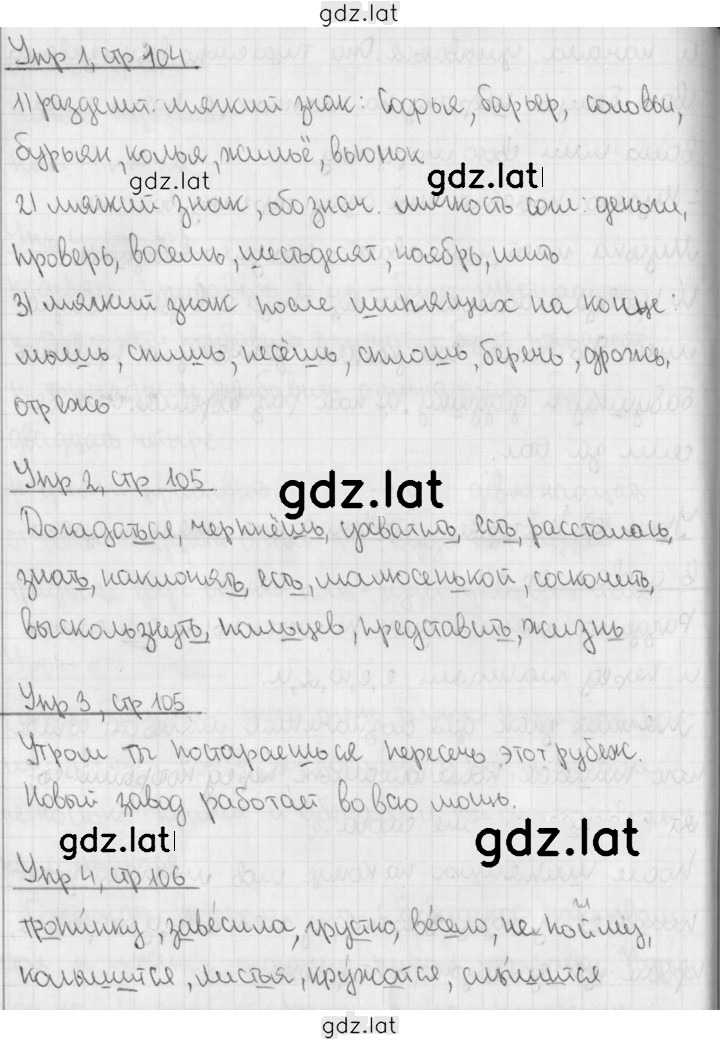 gdz.lat
Упр 1, стр 104
1) разделит. мягкий знак: Софья, барьер, соловьи,
бурьян, колья, жильё, вьюнок
gdz.lat
gdz.lat
2) мягкий знак, обознач. мягкость согл: деньги,
проверь, восемь, шестьдесят, ноябрь, шить
3) мягкий знак после шипящих на конце:
мышь, спишь, несёшь, сплошь, беречь, дрожь,
отрежь
Упр 2, стр 105
gdz.lat
Догадаться, черкнёшь, ухватить, есть, рассталась,
знать, наклонять, есть, малюсенькой, соскочить,
выскользнуть, пальцев, представить, жизнь
Упр 3, стр 105
Утром ты постараешься пересечь этот рубеж.
Новый завод работает во всю мощь.
gdz.lat
gdz.lat
Упр 4, стр 106
тропинку, завесила, грустно, весело, не пойму,
колышится, листья, кружатся, слышится
gdz.lat